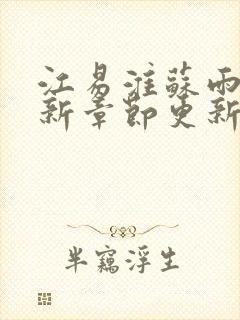 江易淮蘇雨
新章節更新
半竊浮生